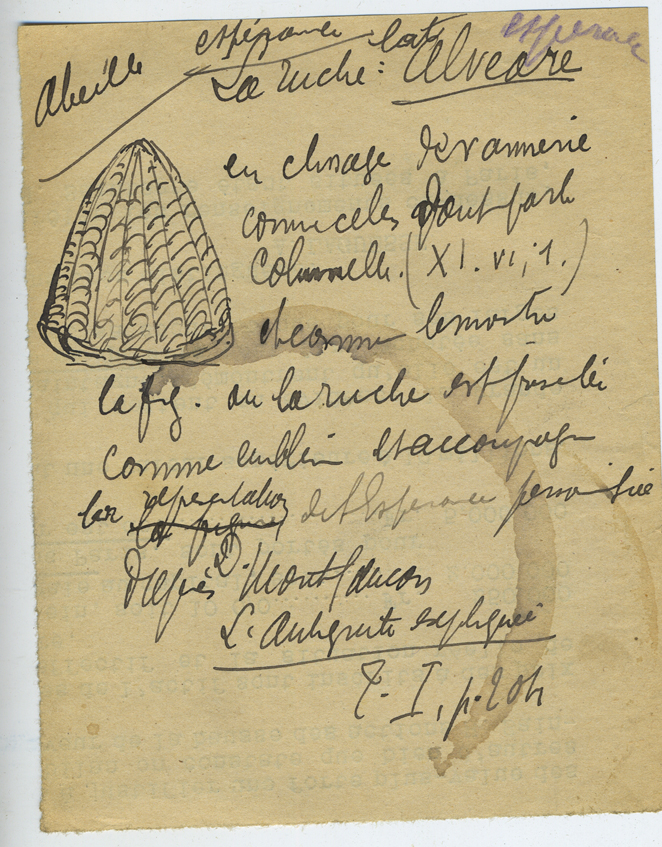 espérance
Abeille espérance lat.
La ruche : Alveare
en clissage de vannerie
comme celles dont parle
Columelle. (XI. VI, 1.)
et comme le montre
la fig. ou la ruche est posée
comme emblème et accompagne
la représentation la figure de l'Espérance personnifiée
D'après D. Montfaucon
L'Antiquité expliquée
T. I, p. 204